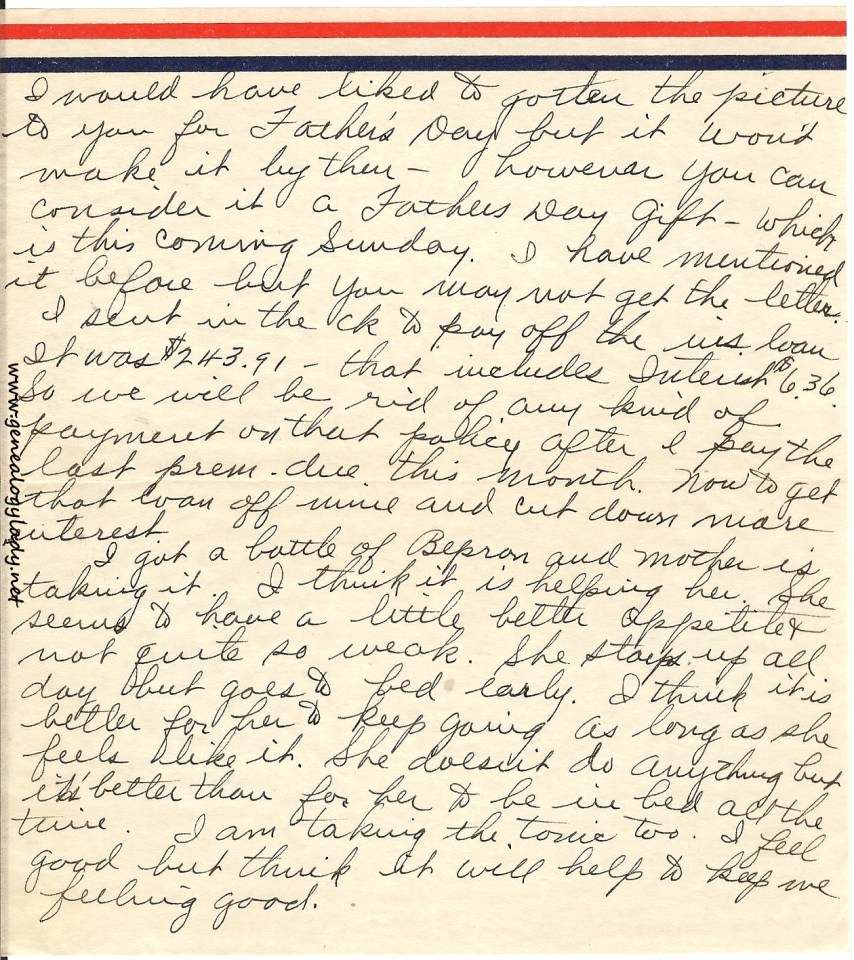 I would have liked to gotten the picture
to you for Father's Day but it won't
make it by then – however you can
consider it a Fathers Day Gift – which
is this coming Sunday. I have mentioned
it before but you may not get the letter.
I sent in the ck to pay off the ins. loan
It was $243.91 – that includes Interest $6.36.
So we will be rid of any kind of
payment on that policy after I pay the
last prem. due this month. Now to get
that loan off mine and cut down more
interest.
I got a bottle of Bepron and mother is
taking it. I think it is helping her. She
seems to have a little better appetite &
not quite so weak. She stays up all
day but goes to bed early. I think it is
better for her to keep going as long as she
feels like it. She doesn't do anything but
it's better than for her to be in bed all the
time. I am taking the tonic too. I feel
good but think it will help to keep me
feeling good.
www.genealogylady.net